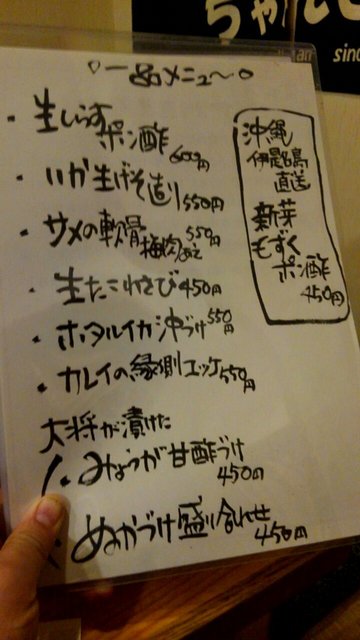 ちゃんこ
sinc
一品メニュ〜
・生しらすポン酢
600円
・いか生げそ造り 550円
・サメの軟骨梅肉あえ 550円
・生たこわさび 450円
・ホタルイカ沖づけ 550円
・カレイの縁側ユッケ 550円
大将が漬けた
・みょうが甘酢づけ
450円
・ぬかづけ盛り合わせ
450円
沖縄
伊是名島
直送
新芽
もずく
ポン酢
450円